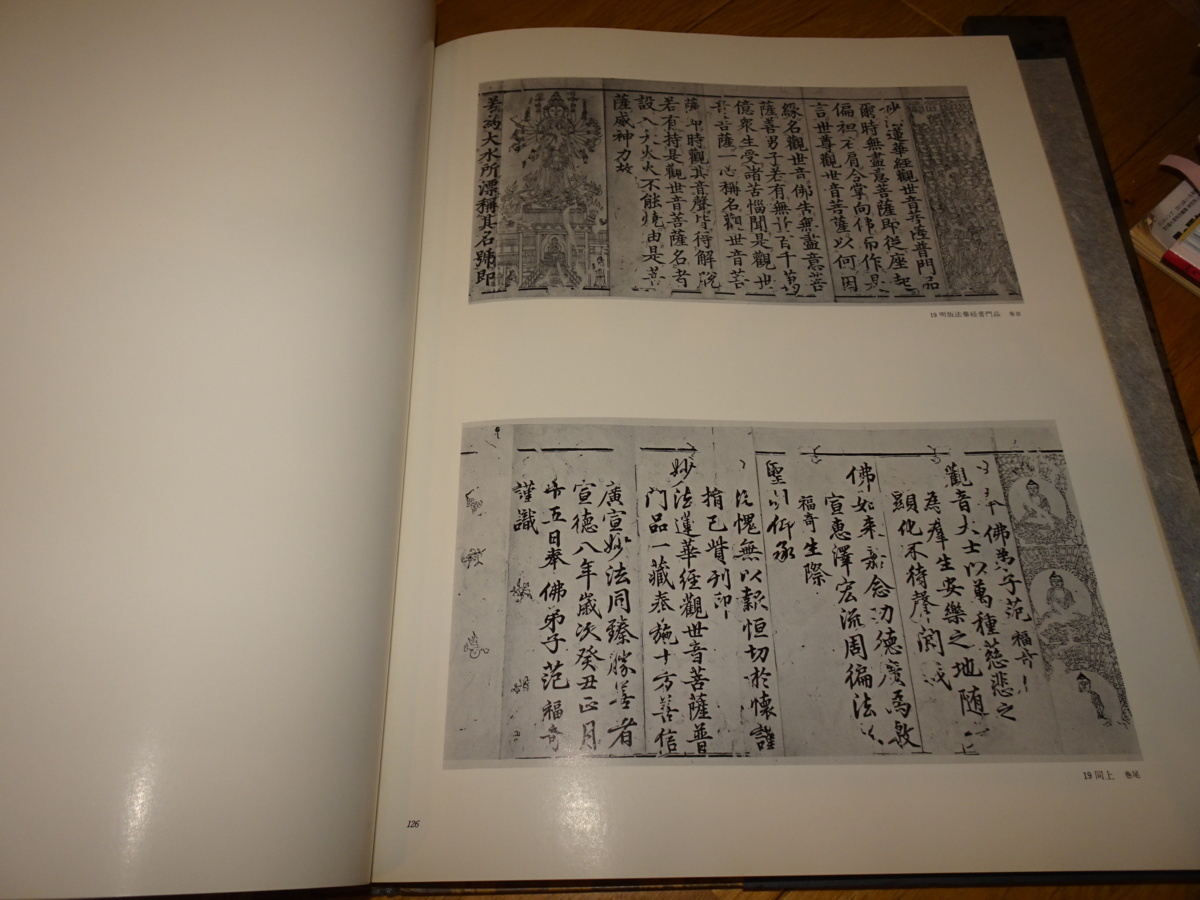 妙法蓮華經觀世音菩薩普門品
爾時無盡意菩薩即從座起
偏袒右肩合掌向佛而作是
言世尊觀世音菩薩以何因
緣名觀世音佛告無盡意菩
薩善男子若有無量百千萬
億衆生受諸苦惱聞是觀世
音菩薩一心稱名觀世音菩
薩即時觀其音聲皆得解脫
若有持是觀世音菩薩名者
設入大火火不能燒由是菩
薩威神力故
若為大水所漂稱其名號即
19 明版法華経普門品 巻首
佛弟子范福奇
觀音大士以萬種慈悲之
為羣生安樂之地随
顯化不待聲
佛如来 念功德廣為敷
宣惠澤宏流周徧法
福奇生際
聖 仰承
愧無以報恒切於懷謹
捐己貲刊印
妙法蓮華經觀世音菩薩普
門品一藏奉施十方善信
廣宣妙法同臻勝善者
宣德八年歲次癸丑正月
五日奉佛弟子范福奇
謹識
19 同上 巻尾
126